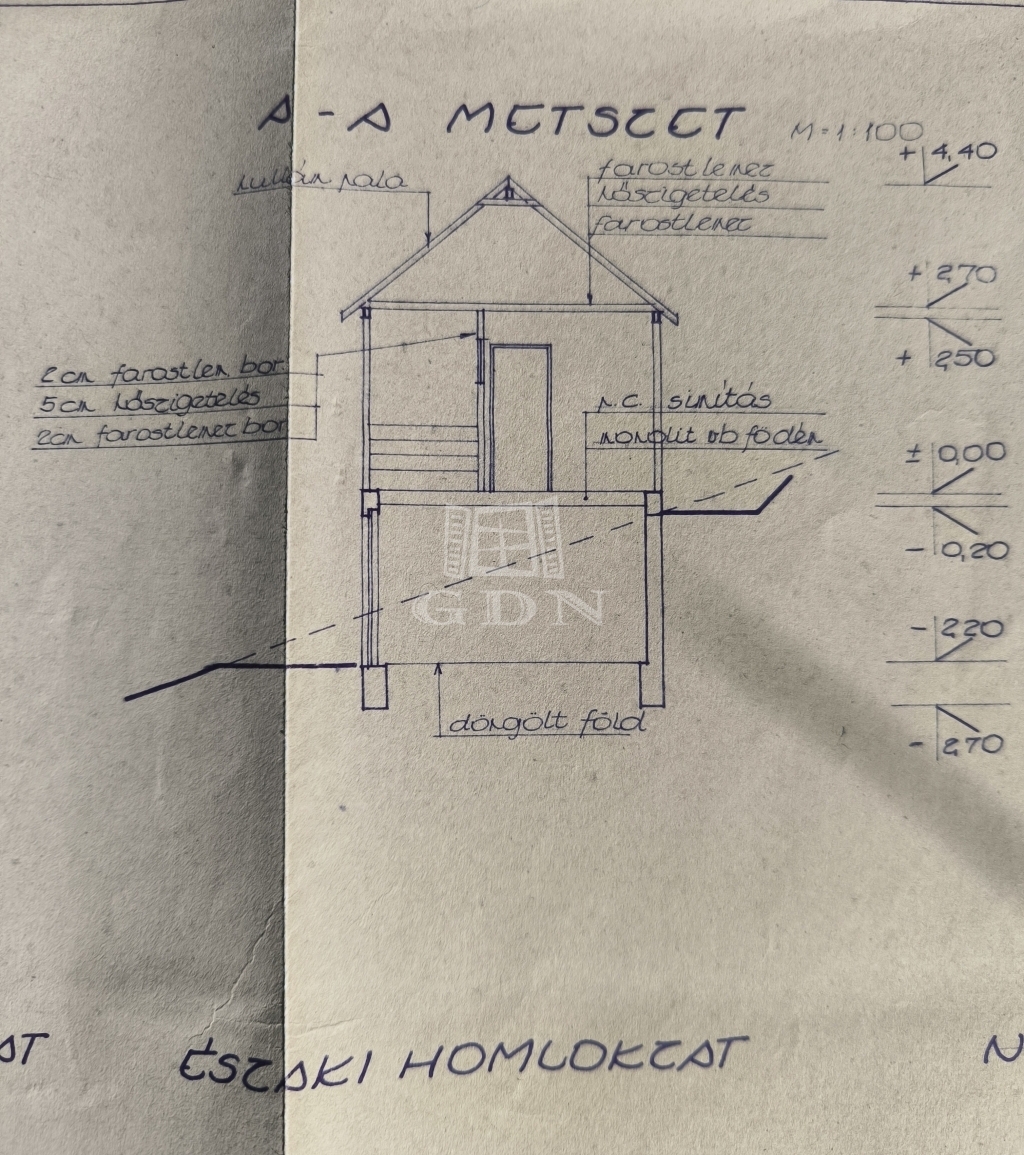 A-A METSZET M=1:100
+4,40
pala
farostlemez
hőszigetelés
farostlemez
+2,70
+2,50
2cm farostlem bor
5cm hőszigetelés
2cm farostlemez bor
p.c. simítás
monolit vb födém
±0,00
-0,20
GDN
-2,20
döngölt föld
-2,70
AT
ÉSZAKI HOMLOKZAT
N